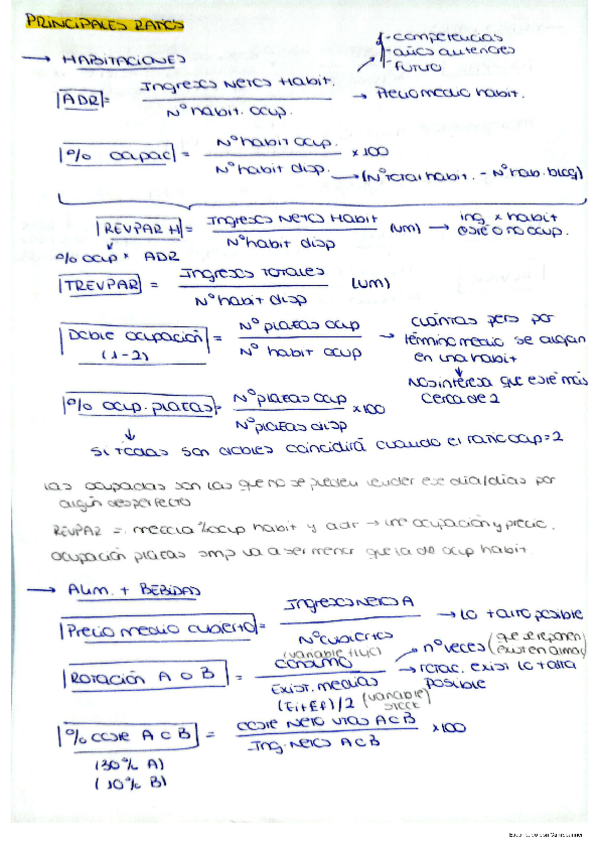 PRINCIPALES RATIOS
→ HABITACIONES
- competencias
- años anteriores
- futuro
ADR = Ingresos Netos Habit. / Nº habit. ocup. → Precio medio habit.
% ocupac = Nº habit ocup. / Nº habit disp. x100
→ (Nº total habit. - Nº hab. bloq)
REVPAR H = Ingresos Netos Habit / Nº habit disp (um) → ing x habit esté o no ocup.
% ocup x ADR
TREVPAR = Ingresos Totales / Nº habit disp (um)
Doble ocupación (1-2) = Nº plazas ocup / Nº habit ocup → cuántas pers por término medio se alojan en una habit
↓
Nos interesa que esté más cerca de 2
% ocup. plazas = Nº plazas ocup / Nº plazas disp x100
↓
Si todas son dobles coincidirá cuando el ratio ocup = 2
las ocupadas son las que no se pueden vender ese día/días por
algún desperfecto
REVPAR = mezcla % ocup habit y adr → une ocupación y precio.
ocupación plazas smp va a ser menor que la de ocup habit.
→ ALIM. + BEBIDAS
Precio medio cubierto = Ingresos Netos A / Nº cubiertos → lo + alto posible
Rotación A o B = consumo (variable flujo) / Exist. medias (Ei+Ef)/2 (variable stock)
→ nº veces (que se reponen exist en almac)
→ rotac. exist lo + alta posible
% coste A o B = coste neto vtas A o B / Ing. netos A o B x100
(30% A)
(10% B)